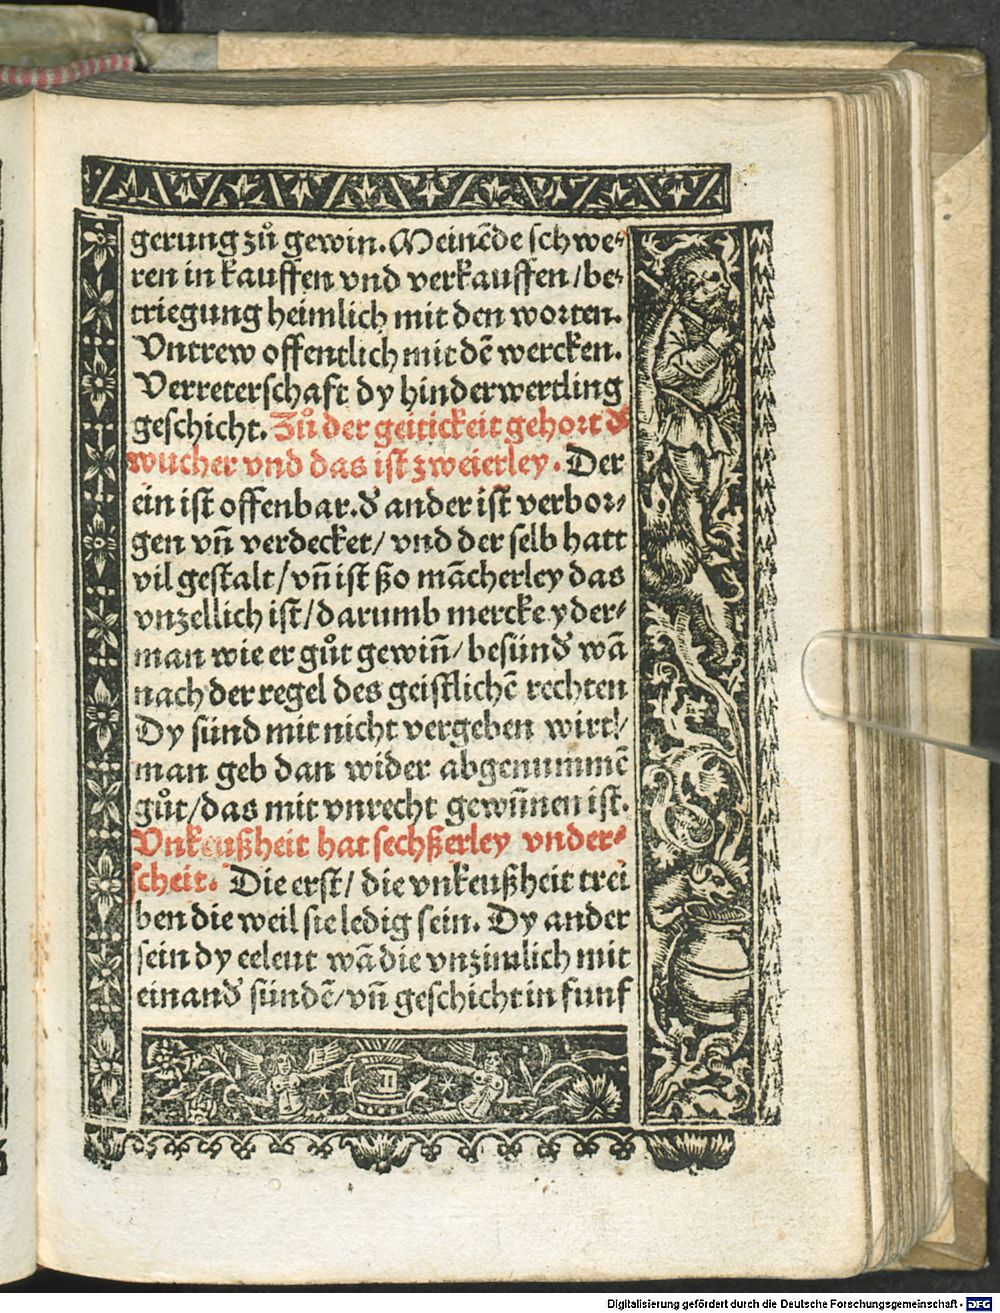 gerung zů gewin. Meinēde schwe⸗
ren in kauffen vnd verkauffen / be⸗
triegung heimlich mit den worten.
Vntrew offentlich mit dē wercken.
Verreterschaft dy hinderwertling
geschicht. Zů der geitickeit gehort đ
wucher vnd das ist zweierley. Der
ein ist offenbar. đ ander ist verbor⸗
gen vn̄ verdecket / vnd der selb hatt
vil gestalt / vn̄ ist ßo mācherley das
vnzellich ist / darumb mercke yder⸗
man wie er gůt gewin̄ / besūnđ wā
nach der regel des geistlichē rechten
Dy sünd mit nicht vergeben wirt /
man geb dan wider abgenummē
gůt / das mit vnrecht gewūnen ist.
Vnkeußheit hat sechßerley vnder⸗
scheit. Die erst / die vnkeußheit trei
ben die weil sie ledig sein. Dy ander
sein dy eeleut wā die vnzimlich mit
einanđ sündē / vn̄ geschicht in funf
Digitalisierung gefördert durch die Deutsche Forschungsgemeinschaft - DFG